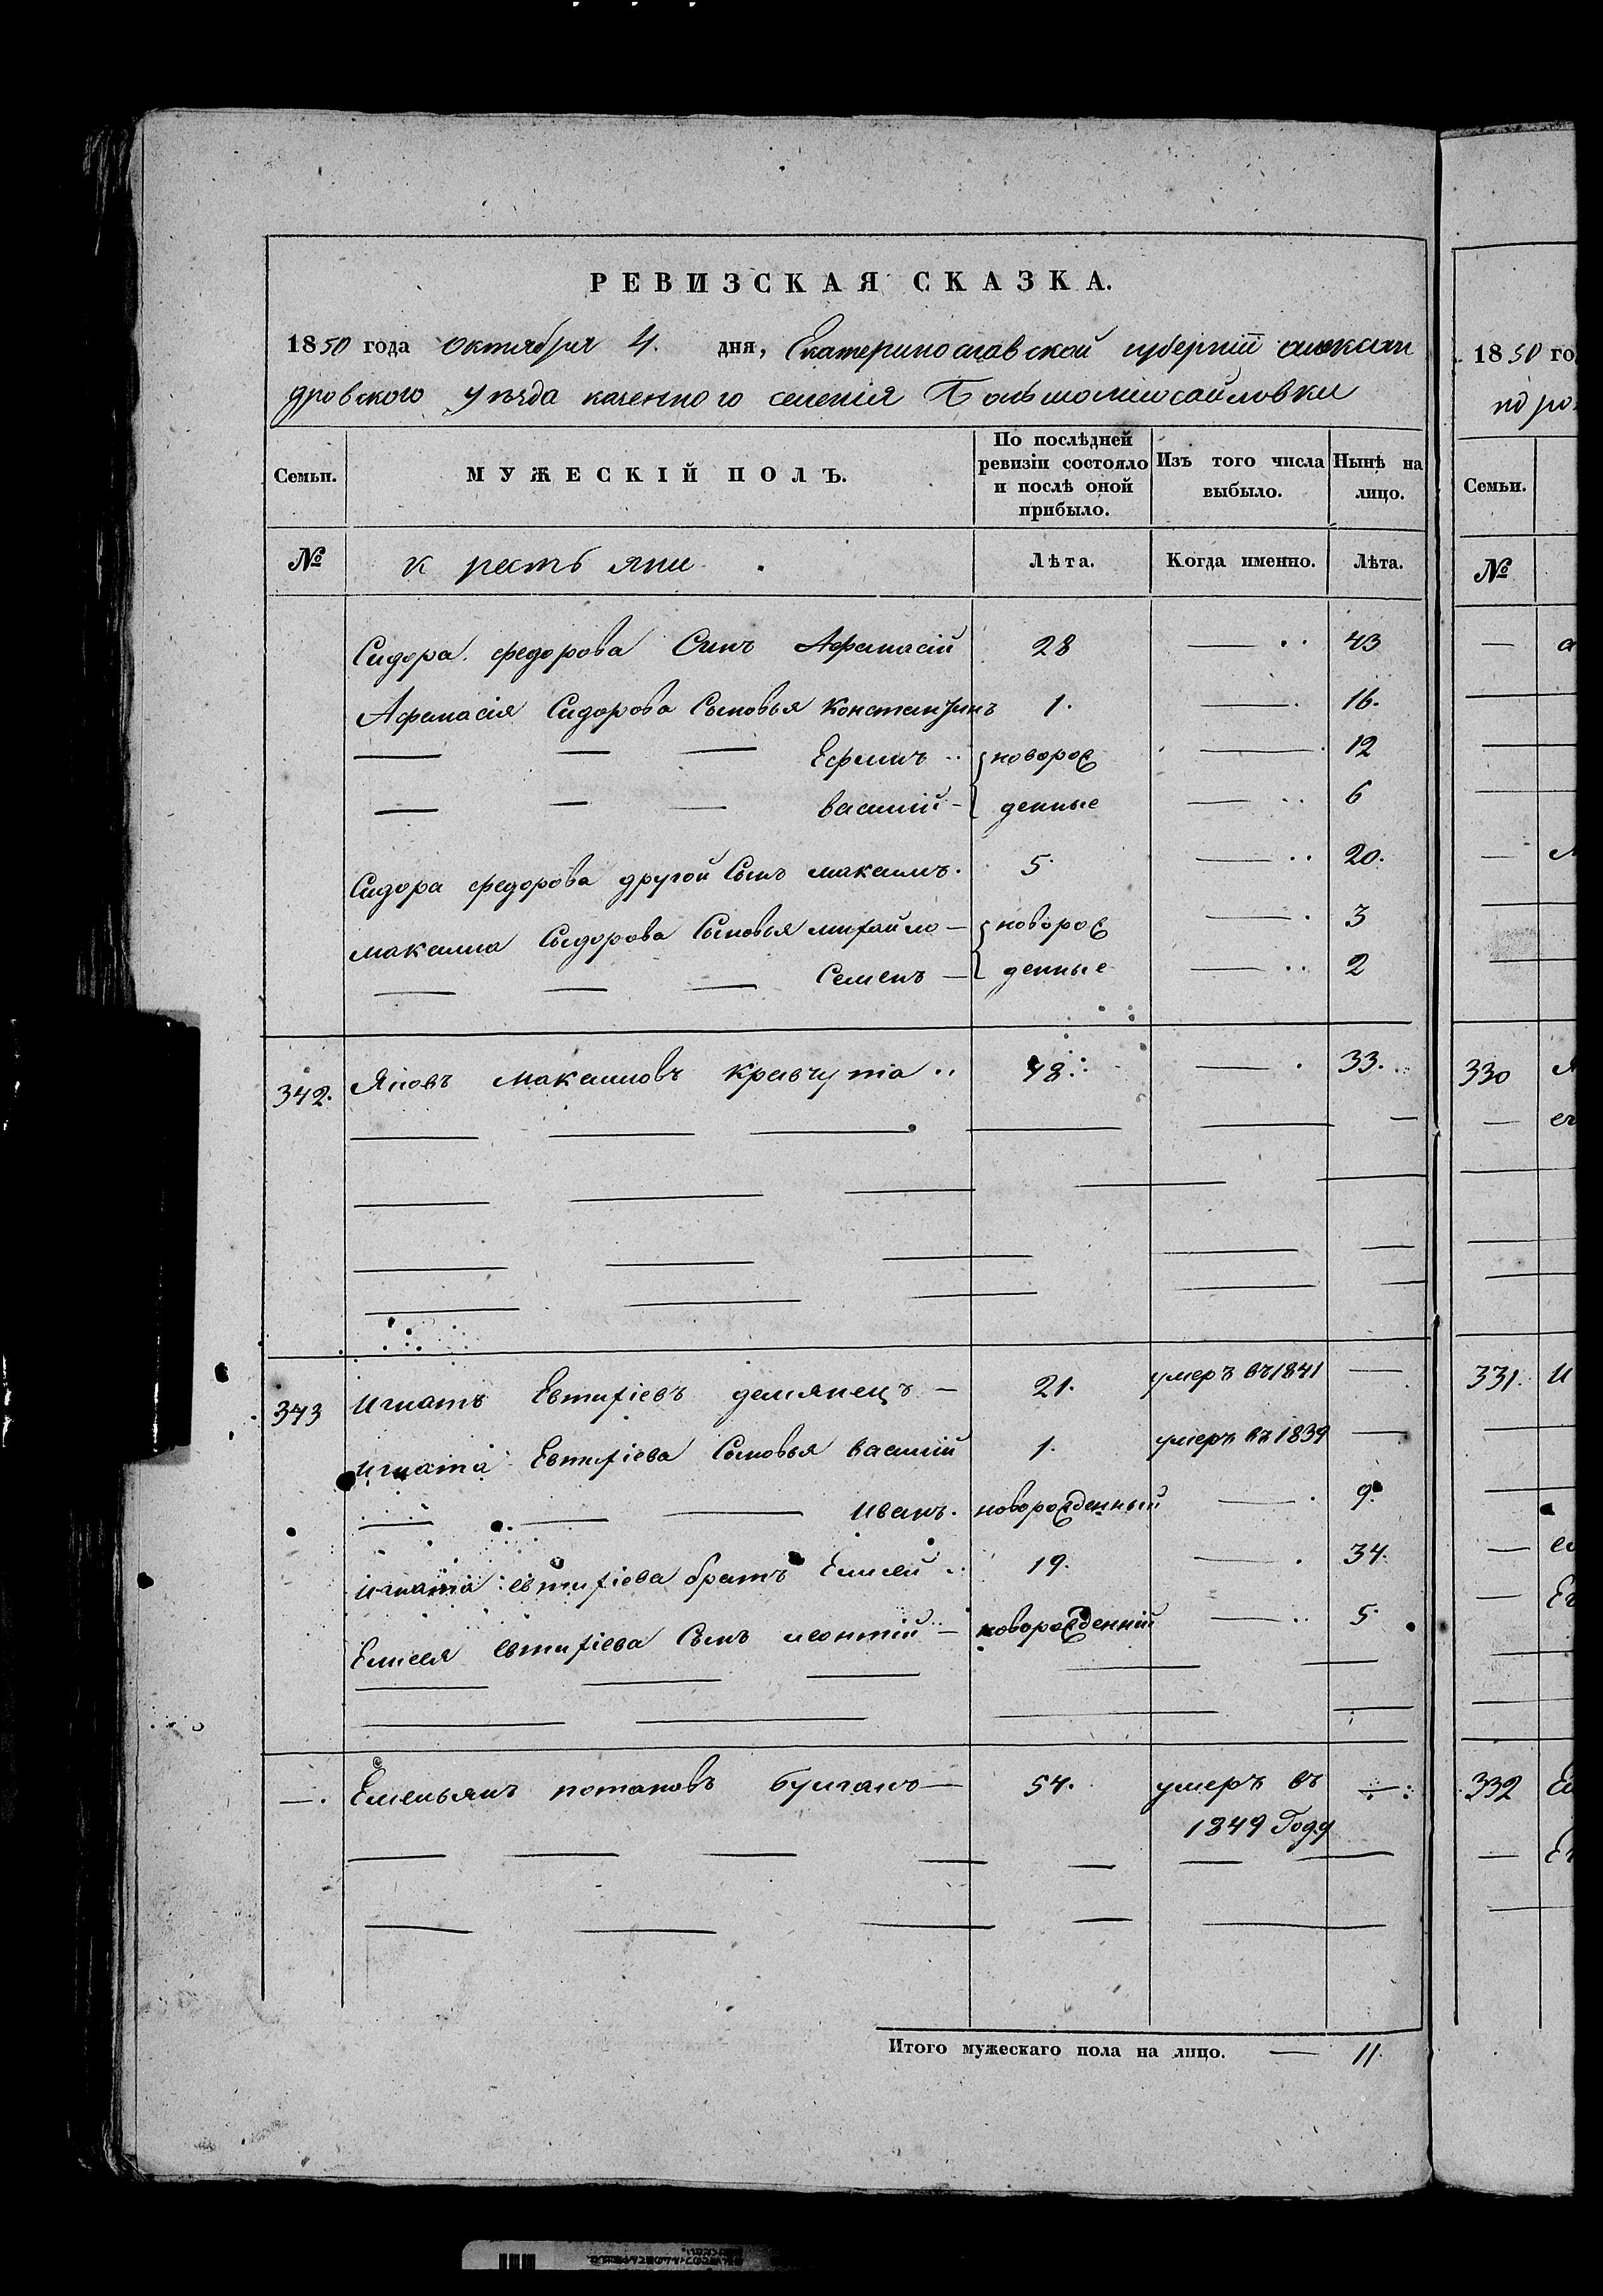 РЕВИЗСКАЯ СКАЗКА.
1850 года октября 4. дня, Екатеринославской губерніи алексан
дровского уезда казенного селенія Большомихайловки
Семьи.
МУЖЕСКІЙ ПОЛЪ.
По послѣдней ревизіи состояло и послѣ оной прибыло.
Изъ того числа выбыло.
Нынѣ на лицо.
№ крестьяни Лѣта. Когда именно. Лѣта.
Сидора федорова Синъ Афанасій 28 — 43
Афанасія Сидорова Сыновья Константинъ 1. — 16.
— — — Ефимъ новорож — 12
— — — василій — денные — 6
Сидора федорова другой Сынъ максимъ. 5 — 20.
максима Сыдорова Сыновья михайло — новорож — 3
— — — Семенъ — денные — 2
342. Яковъ Максимовъ кравчута 18. — 33.
343 игнатъ Евтихіевъ демянецъ — 21. умеръ въ 1841 —
игната Евтихіева Сыновья василій 1. умеръ въ 1839 —
— — — иванъ. новорожденный — 9.
игната евтихіева братъ Елисей 19. — 34.
Елисея евтихіева Сынъ леонтій — новорожденній — 5.
—. Емельянъ потаповъ булганъ — 54. умеръ въ —
1849 Году
Итого мужескаго пола на лицо. — 11.
1850 го
Семьи.
№
330
331.
332